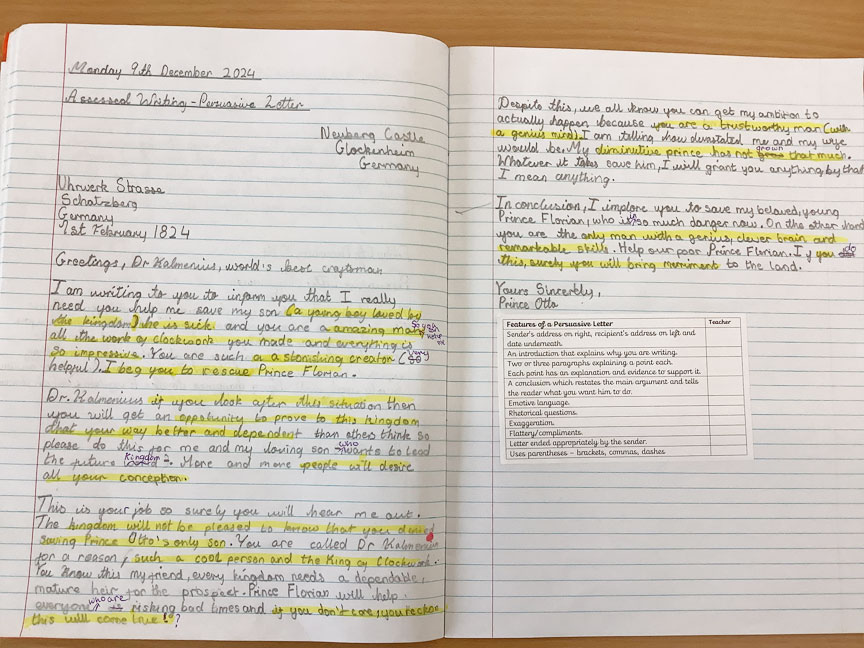 Monday 9th December 2024
Assessed Writing - Persuasive Letter
Neuberg Castle
Glockenheim
Germany
Uhrwerk Strasse
Schatzberg
Germany
1st February 1824
Greetings, Dr Kalmenius, world's best craftsman
I am writing to you to inform you that I really
need you help me save my son (a young boy loved by
the kingdom) he is sick and you are a amazing man
all the work of clockwork you made and everything is
so impressive. You are such a a stonishing creator (very
helpful). I beg you to rescue Prince Florian.
Dr. Kalmenius if you look after this situation then
you will get an oppotunity to prove to this kingdom
that your way better and dependent than others think so
please do this for me and my loving son who wants to lead
the future kingdom. More and more people will desire
all your conception.
This is your job so surely you will hear me out.
The kingdom will not be pleased to know that you denied
saving Prince Otto's only son. You are called Dr Kalmenius
for a reason, such a cool person and the King of Clockwork.
You know this my friend, every kingdom needs a dependable,
mature heir for the prospect. Prince Florian will help
everyone who are risking bad times and if you don't care, you reckon
this will come true!?
Despite this, we all know you can get my ambition to
actually happen because you are a trustworthy man (with
a genius mind). I am telling how devastated me and my wife
would be. My diminutive prince has not grown that much.
Whatever it takes save him, I will grant you anything by that
I mean anything.
In conclusion, I implore you to save my beloved, young
Prince Florian, who is in so much danger now. On the other hand
you are the only man with a genius, clever brain and
remarkable skills. Help our poor Prince Florian. If you do
this, surely you will bring merriment to the land.
Yours Sincerbly,
Prince Otto
Features of a Persuasive Letter Teacher
Sender's address on right, recipient's address on left and
date underneath.
An introduction that explains why you are writing.
Two or three paragraphs explaining a point each.
Each point has an explanation and evidence to support it.
A conclusion which restates the main argument and tells
the reader what you want him to do.
Emotive language.
Rhetorical questions.
Exaggeration.
Flattery/compliments.
Letter ended appropriately by the sender.
Uses parentheses – brackets, commas, dashes